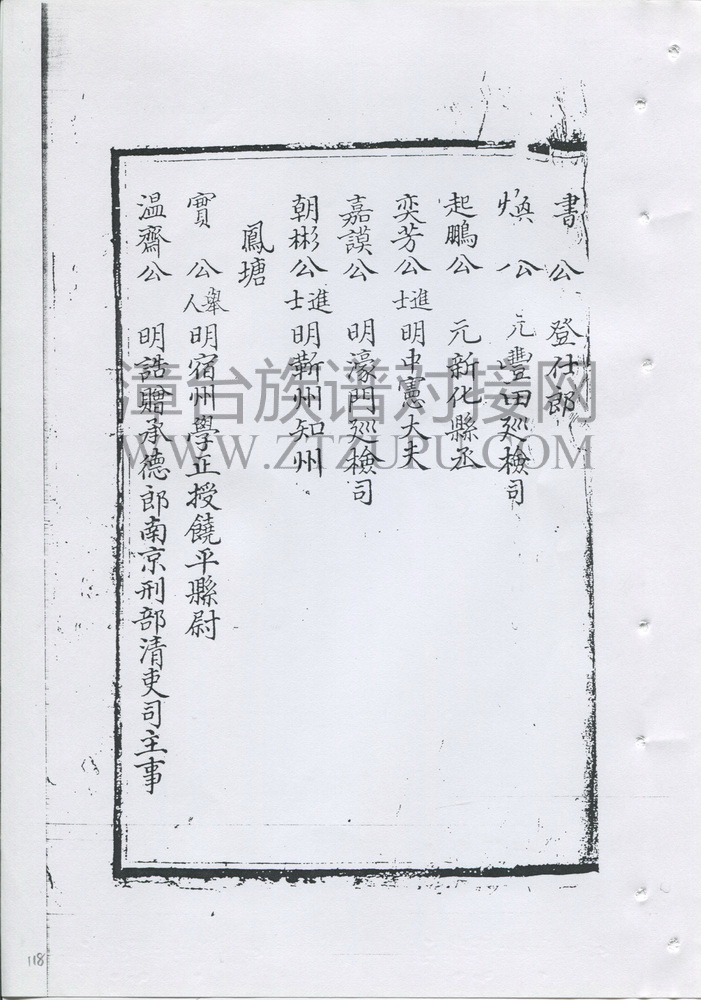 書公 登仕郎
煥公 元豐田廵檢司
起鵬公 元新化縣丞
奕芳公 進士 明中憲大夫
嘉謨公 明濠門廵檢司
朝彬公 進士 明蘄州知州
鳳塘
實公 舉人 明宿州學正授饒平縣尉
温齋公 明誥贈承德郎南京刑部清吏司主事
漳台族谱对接网
WWW.ZTZUPU.COM
118